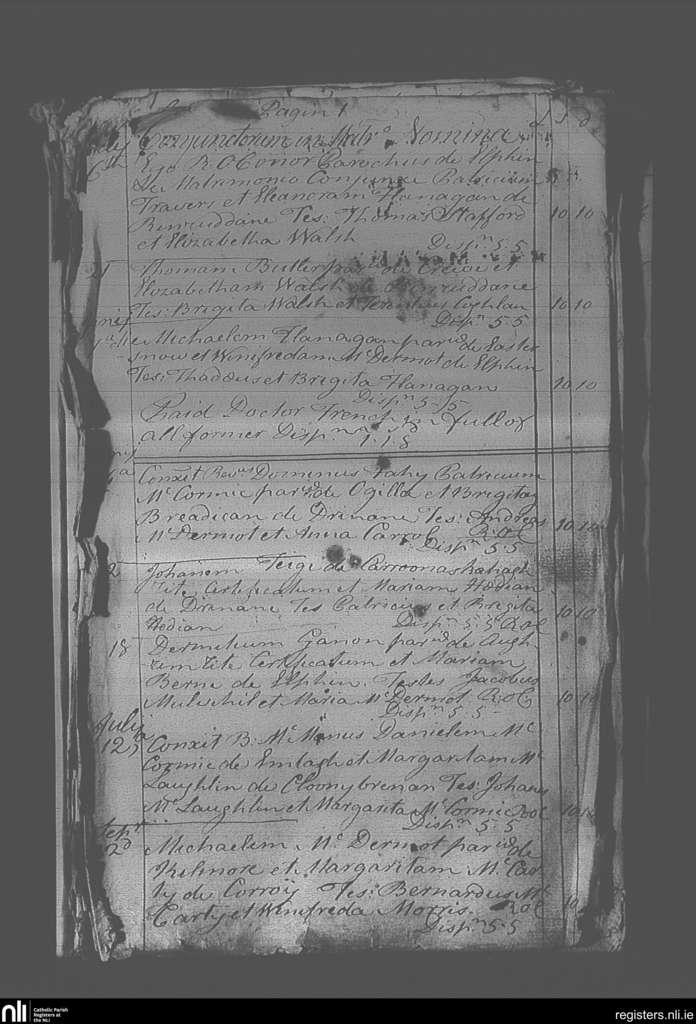 Pagin 1
Conjunctorum in Matr.º Nomina £ s d
6th Ego R. O Conor Parochus de Elphin
de Matrimonio Conjunxi Patricium
Travers et Eleanoram Flanagan de
Tes: Thomas Stafford 10.10
et Elizabetha Walsh Disp.n 5.5
Thomam Butler par.. de Creive et
Elizabetham Walsh de
Tes: Brigita Walsh et Terentius Coghlan 10.10
Disp.n 5.5
Michaelem Flanagan par.. de Easter
snow et Winifredam Mc Dermot de Elphin
Tes: Thaddeus et Brigita Flanagan 10.10
Disp.n 5-5
Paid Doctor French in full of
all former Disp.ns 1.1.8
Conxit Rev.us Dominus Fahy Patricium
Mc Cormic par.. de Ogilla et Brigitam
Breadican de Drinane Tes: Andreas
Mc Dermot et Anna Carrol R.OC 10.10
Disp.n 5 5
Johanem Teige de
Lite Certificatum et Mariam Hedian
de Drinane Tes Patricius et Brigita 10.10
Hedian Disp.n 5.5 R.OC
18 Dermitium Ganon par.. de Augh
rim Lite Certificatum et Mariam
Berne de Elphin. Testes Jacobus
et Maria Mc Dermot R.OC 10.10
Disp.n 5.5
July
12, Conxit B: Mc Manus Danielem Mc
Cormic de Emlagh et Margaritam Mc
Laughlin de Cloonybrenan Tes: Johans
Mc Laughlin et Margarita Mc Cormic ROC 10.10
Disp.n 5.5
Sept.r
2d Michaelem Mc Dermot par.. de
Kilmore et Margaritam Mc Car
ty de Corroy Tes: Bernardus Mc
Carty et Winifreda Morris. ROC 10
Disp.n 5.5
nli Catholic Parish
Registers at
the NLI
registers.nli.ie